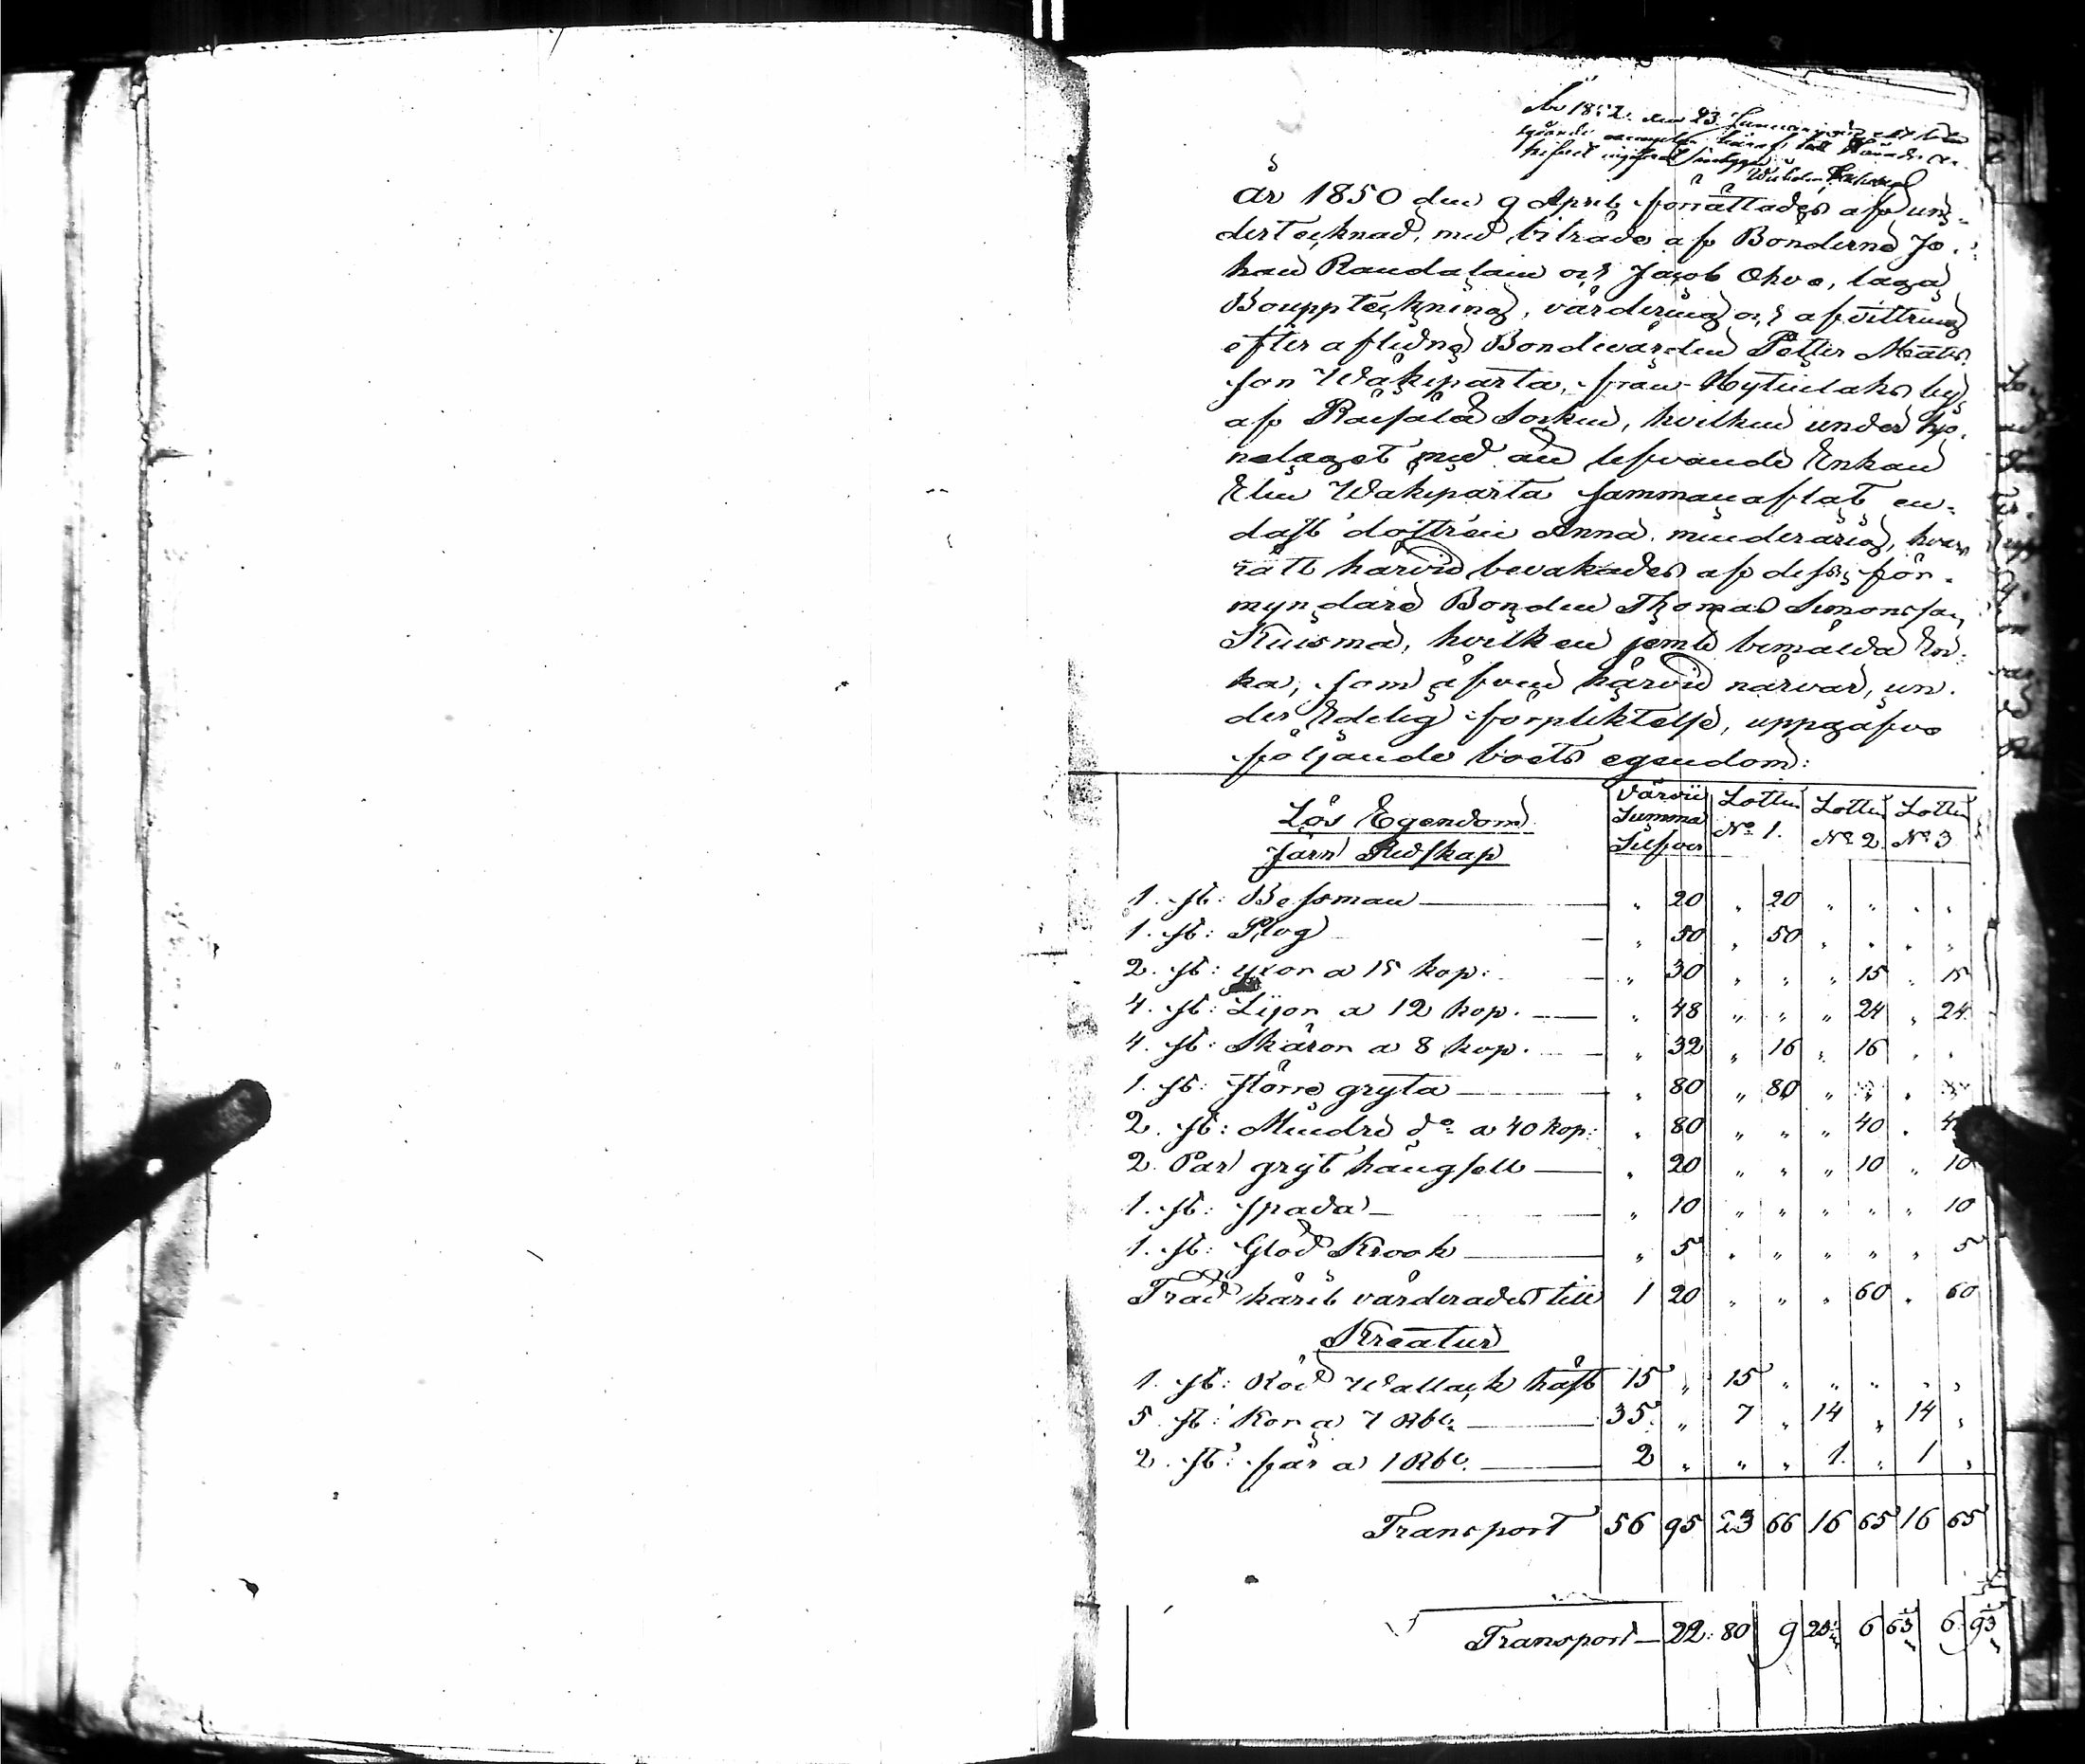 År 1852 den 23 Januari
År 1850 den 9 April förrättades af un-
dertecknad, med biträde af Bönderne Jo-
han Raudalain och Jacob Ohvo, laga
Bouppteckning, värdering och afvittring
efter aflidne Bondevärden Petter Matts
son Wäkiparta, från Hytinlaks by
af Raisälä Socken, hvilken under hjo-
nelaget med än lefvande Enkan
Elin Wäkiparta sammanaflat en-
dast dottren Anna, minderårig, hvars
rätt härvid bevakades af dess för-
myndare Bonden Thomas Simonsson
Kuisma, hvilken jemte bemälda En-
ka, som äfven härvid närvar, un-
der Edelig förpliktelse, uppgåfvo
följande boets egendom:
Lös Egendom Värdie Summa Silfver Lotten No 1. Lotten No 2 Lotten No 3
Järn Redskap
1. st: Bessman " 20 " 20 " " " "
1. st: Plog " 50 " 50 " " " "
2. st: yxor a 15 kop: " 30 " " " 15 " 15
4. st: Lijor a 12 kop. " 48 " " " 24 " 24
4. st: Skäror a 8 kop. " 32 " 16 " 16 " "
1. st: större gryta " 80 " 80 " " " "
2. st: Mindre do a 40 kop: " 80 " " " 40 "
2. Par gryt hängsell " 20 " " " 10 " 10
1. st: spada " 10 " " " " " 10
1. st: Glöd Krook " 5 " " " " " 5
Träd käril värderades till 1 20 " " " 60 " 60
Kreatur
1. st: Röd Wallack häst 15 " 15 " " " " "
5 st: Kor a 7 Rbl. 35 " 7 " 14 " 14 "
2. st: får a 1 Rbl. 2 " " " 1 " 1 "
Transport 56 95 23 66 16 65 16 65
Transport 22: 80 9 6 63 6 93